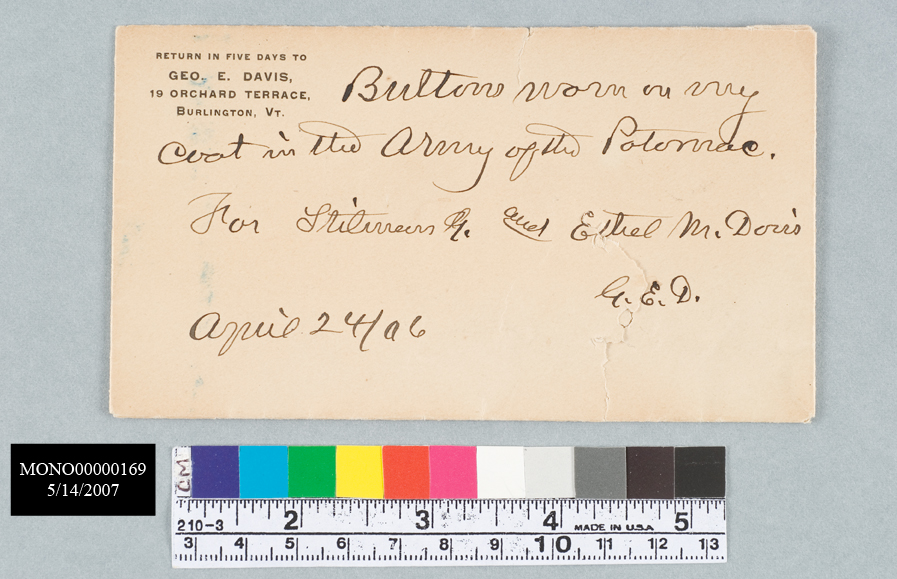 RETURN IN FIVE DAYS TO
GEO. E. DAVIS,
19 ORCHARD TERRACE,
BURLINGTON, VT.
Buttons worn on my
coat in the Army of the Potomac.
For Stilman G. and Ethel M. Davis
G. E. D.
April 24/06
MONO00000169
5/14/2007
CM
210-3 2 3 4 MADE IN U.S.A 5
3 4 5 6 7 8 9 10 11 12 13